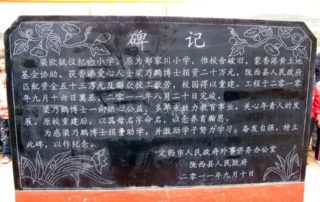 碑记
梁欧毓仪纪念小学,原为郑家川小学,惟校舍破旧,蒙香港黄土地
基金协助,获香港爱心人士梁乃鹏博士捐资二十万元,陇西县人民政府
匹配资金五十三万元及群众投工投劳,校园得以重建。工程于二〇一〇
年九月十六日奠基,二〇一一年八月二十日完竣。
梁乃鹏博士一向热心公益,多年来致力教育事业,关心青年人的发
展。原校重建后,以其母名字命名,以念养育厚恩。
为感梁乃鹏博士捐资助学,并激励学子努力学习,奋发自强,特立
此碑,以作纪念。
定西市人民政府外事侨务办公室
陇西县人民政府
二〇一一年九月十日